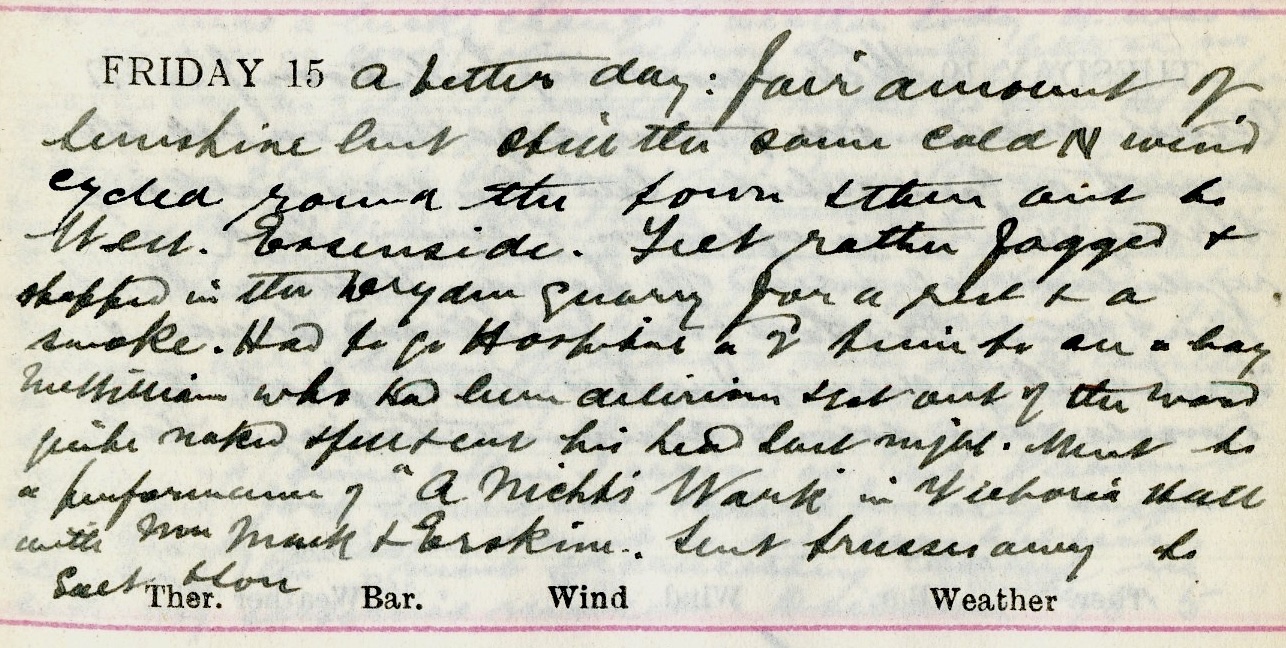 FRIDAY 15 A better day: fair amount of
sunshine but still the same cold N wind
cycled round the town & then out to
West. Essenside. Felt rather fagged &
stopped in the quarry for a rest & a
smoke. Had to go Hospital a 2nd time to see a boy
McWilliam who had been delirious & got out of the ward
quite naked & fell & cut his head last night. Went to
a performance of "A Nichts Wark" in Victoria Hall
with Mrs Mack & Erskine. Sent trusses away to
Ther. Bar. Wind Weather